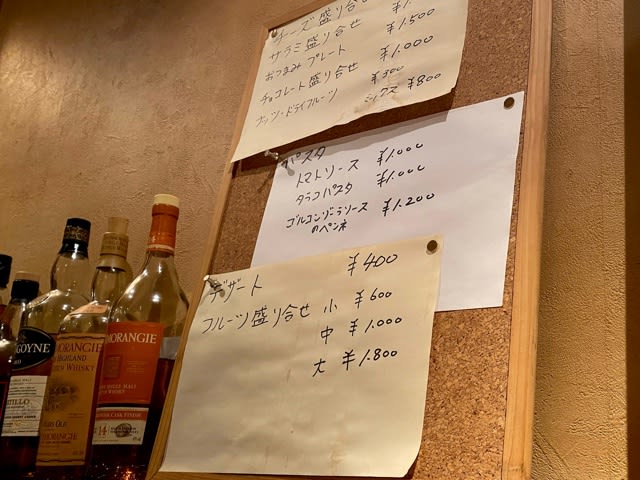 チーズ盛り合せ
サラミ盛り合せ ¥1.500
おつまみプレート ¥1.000
チョコレート盛り合せ ¥500
ナッツ・ドライフルーツ ミックス ¥800
パスタ
トマトソース ¥1.000
タラコパスタ ¥1.000
ゴルゴンゾーラソース ¥1.200
のペンネ
デザート ¥400
フルーツ盛り合せ 小 ¥600
中 ¥1.000
大 ¥1.800
GOYNE
MORANGIE
HIGHLAND
SCOTCH WHISKY
MORANGIE
MORANGIE
SINGLE MALT
14